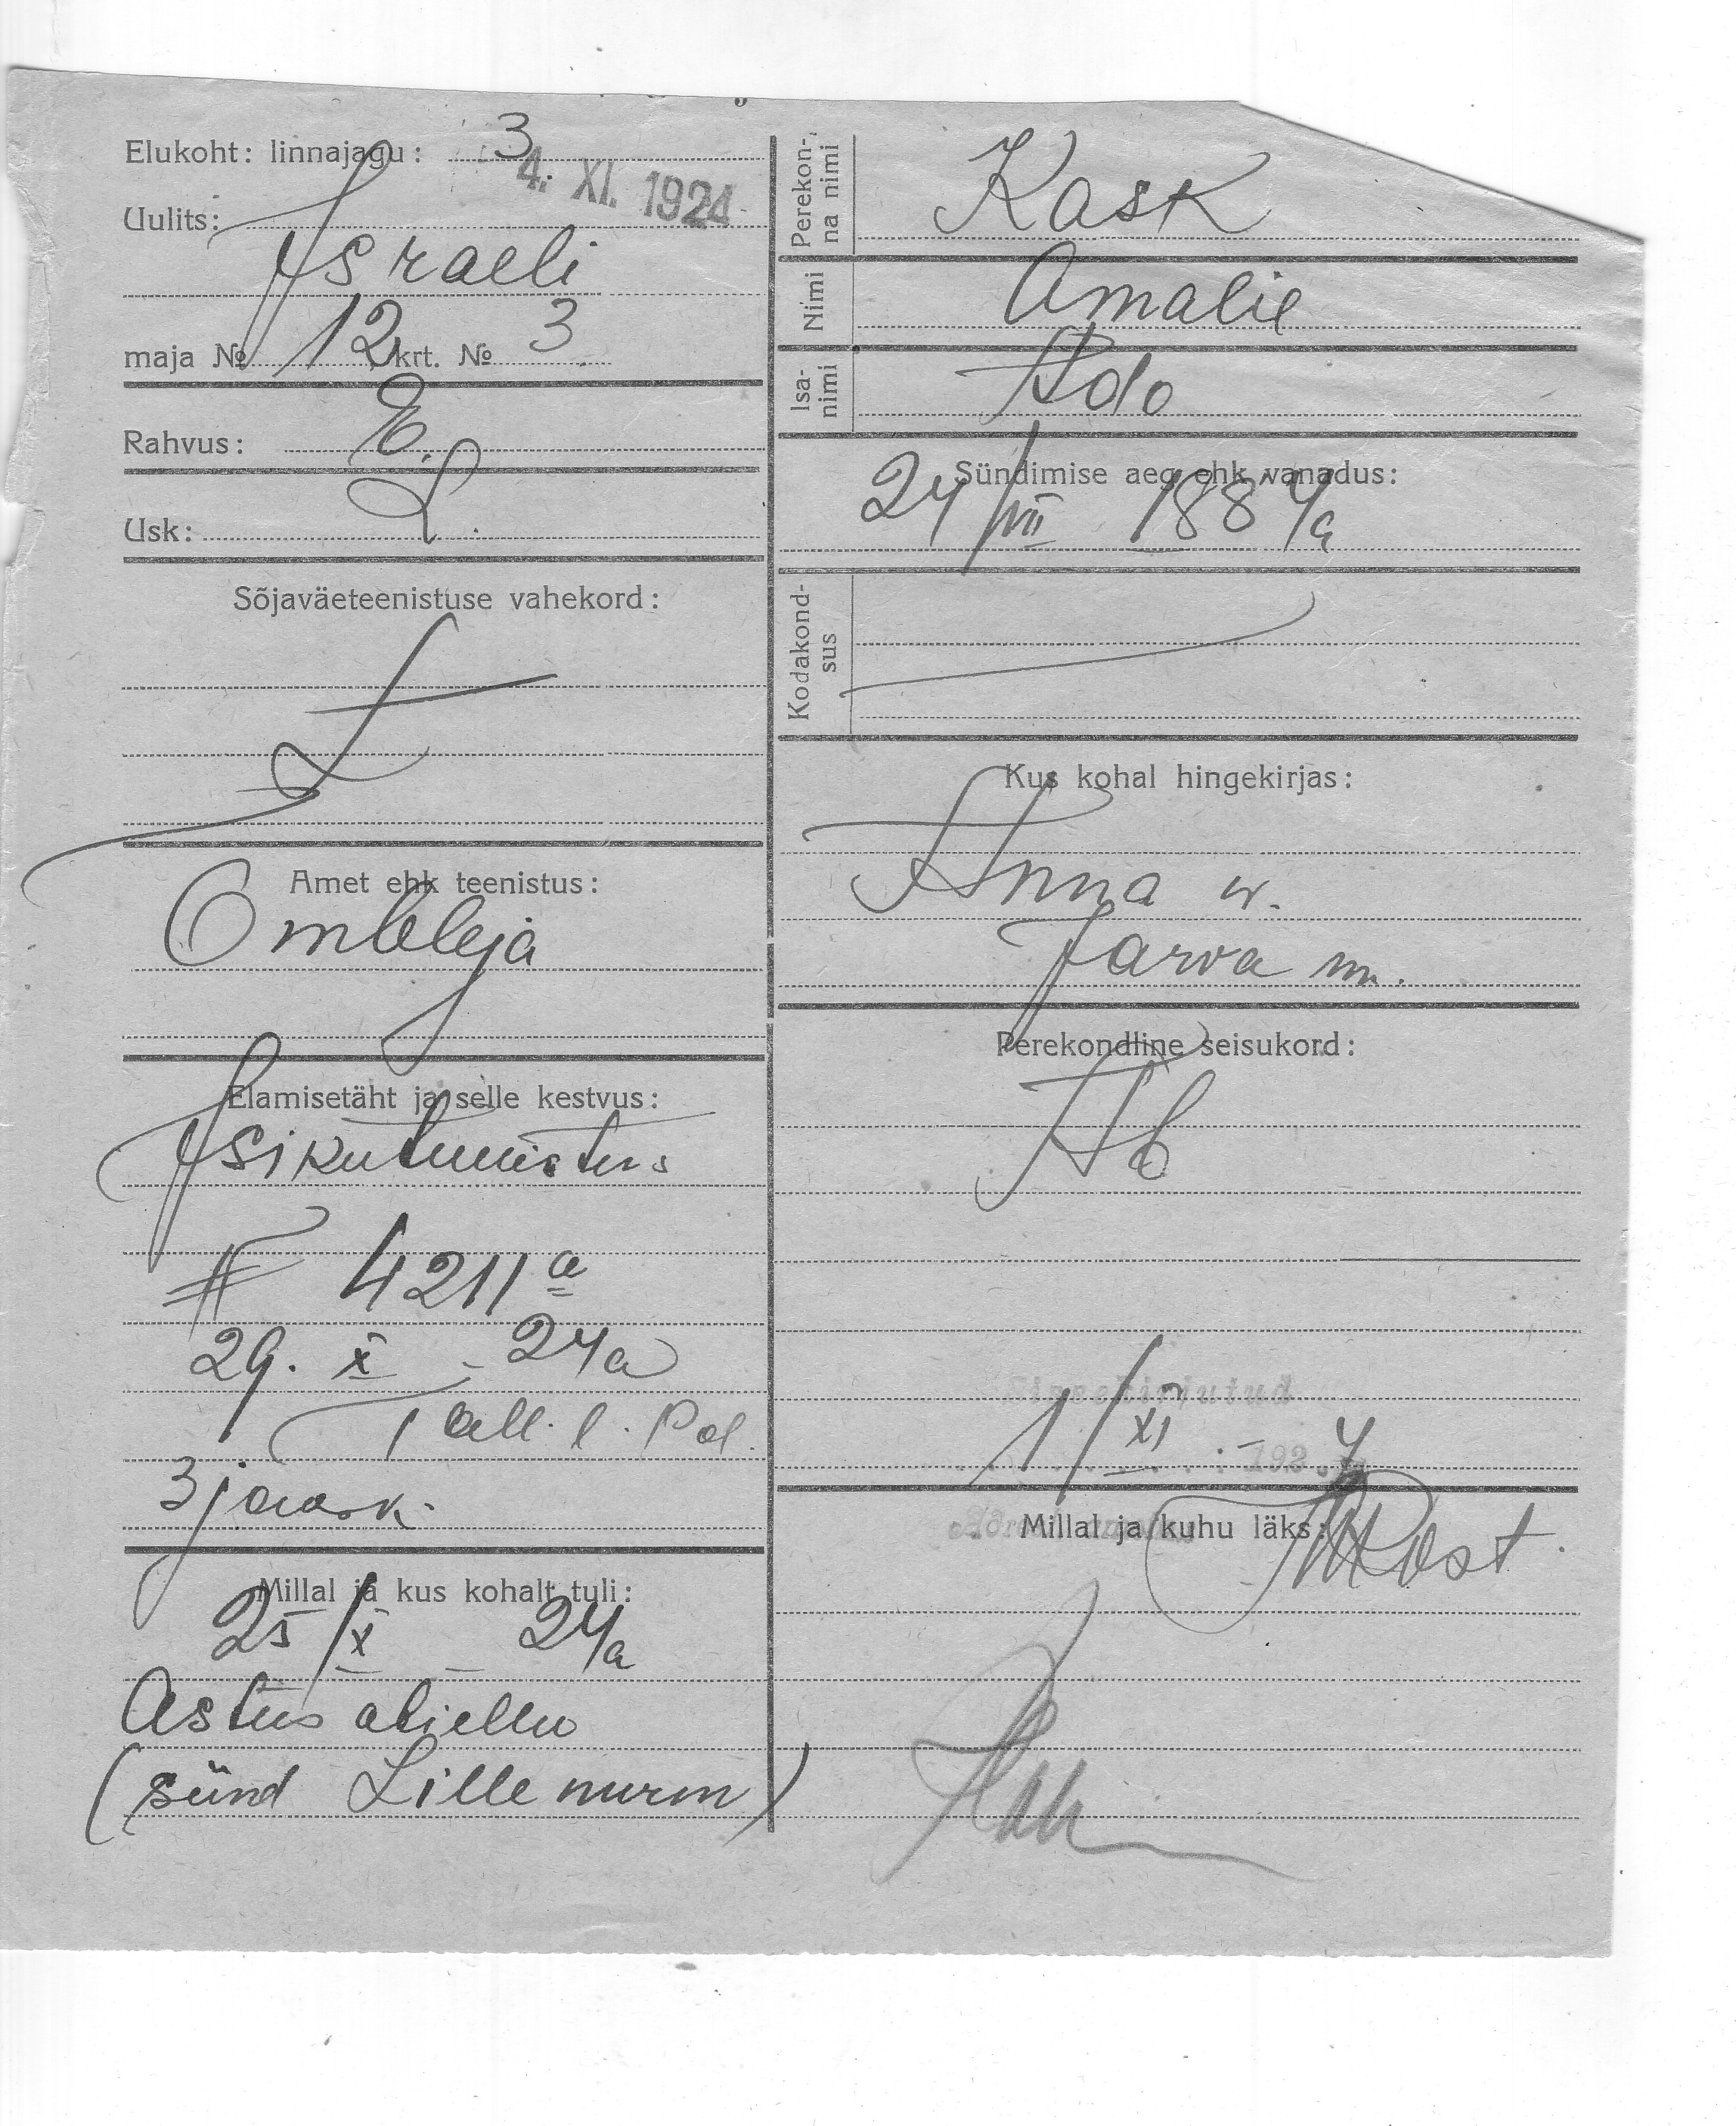 Elukoht: linnajagu: 3
4. XI. 1924
Uulits:
Israeli
maja № 12 krt. № 3
Rahvus: E.
Usk: L.
Sõjaväeteenistuse vahekord:
Amet ehk teenistus:
Ombleja
Elamisetäht ja selle kestvus:
Isikutunnistus
# 4211a
29. X - 24a
Tall. l. Pol.
3 jaosk.
Millal ja kus kohalt tuli:
25/X - 24a
Astus abiellu
(sünd Lillenurm)
Perekon-
na nimi
Kask
Nimi
Amalie
Isa-
nimi
Ado
Sündimise aeg ehk vanadus:
24/VII 1884a
Kodakond-
sus
Kus kohal hingekirjas:
Anna w.
Jarva m.
Perekondline seisukord:
Ab
1/XI - 1924
Millal ja kuhu läks: